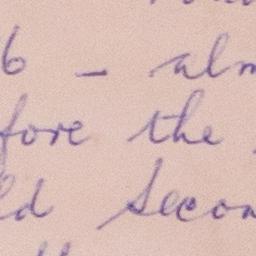 6 - alm
fore the
ld Secon